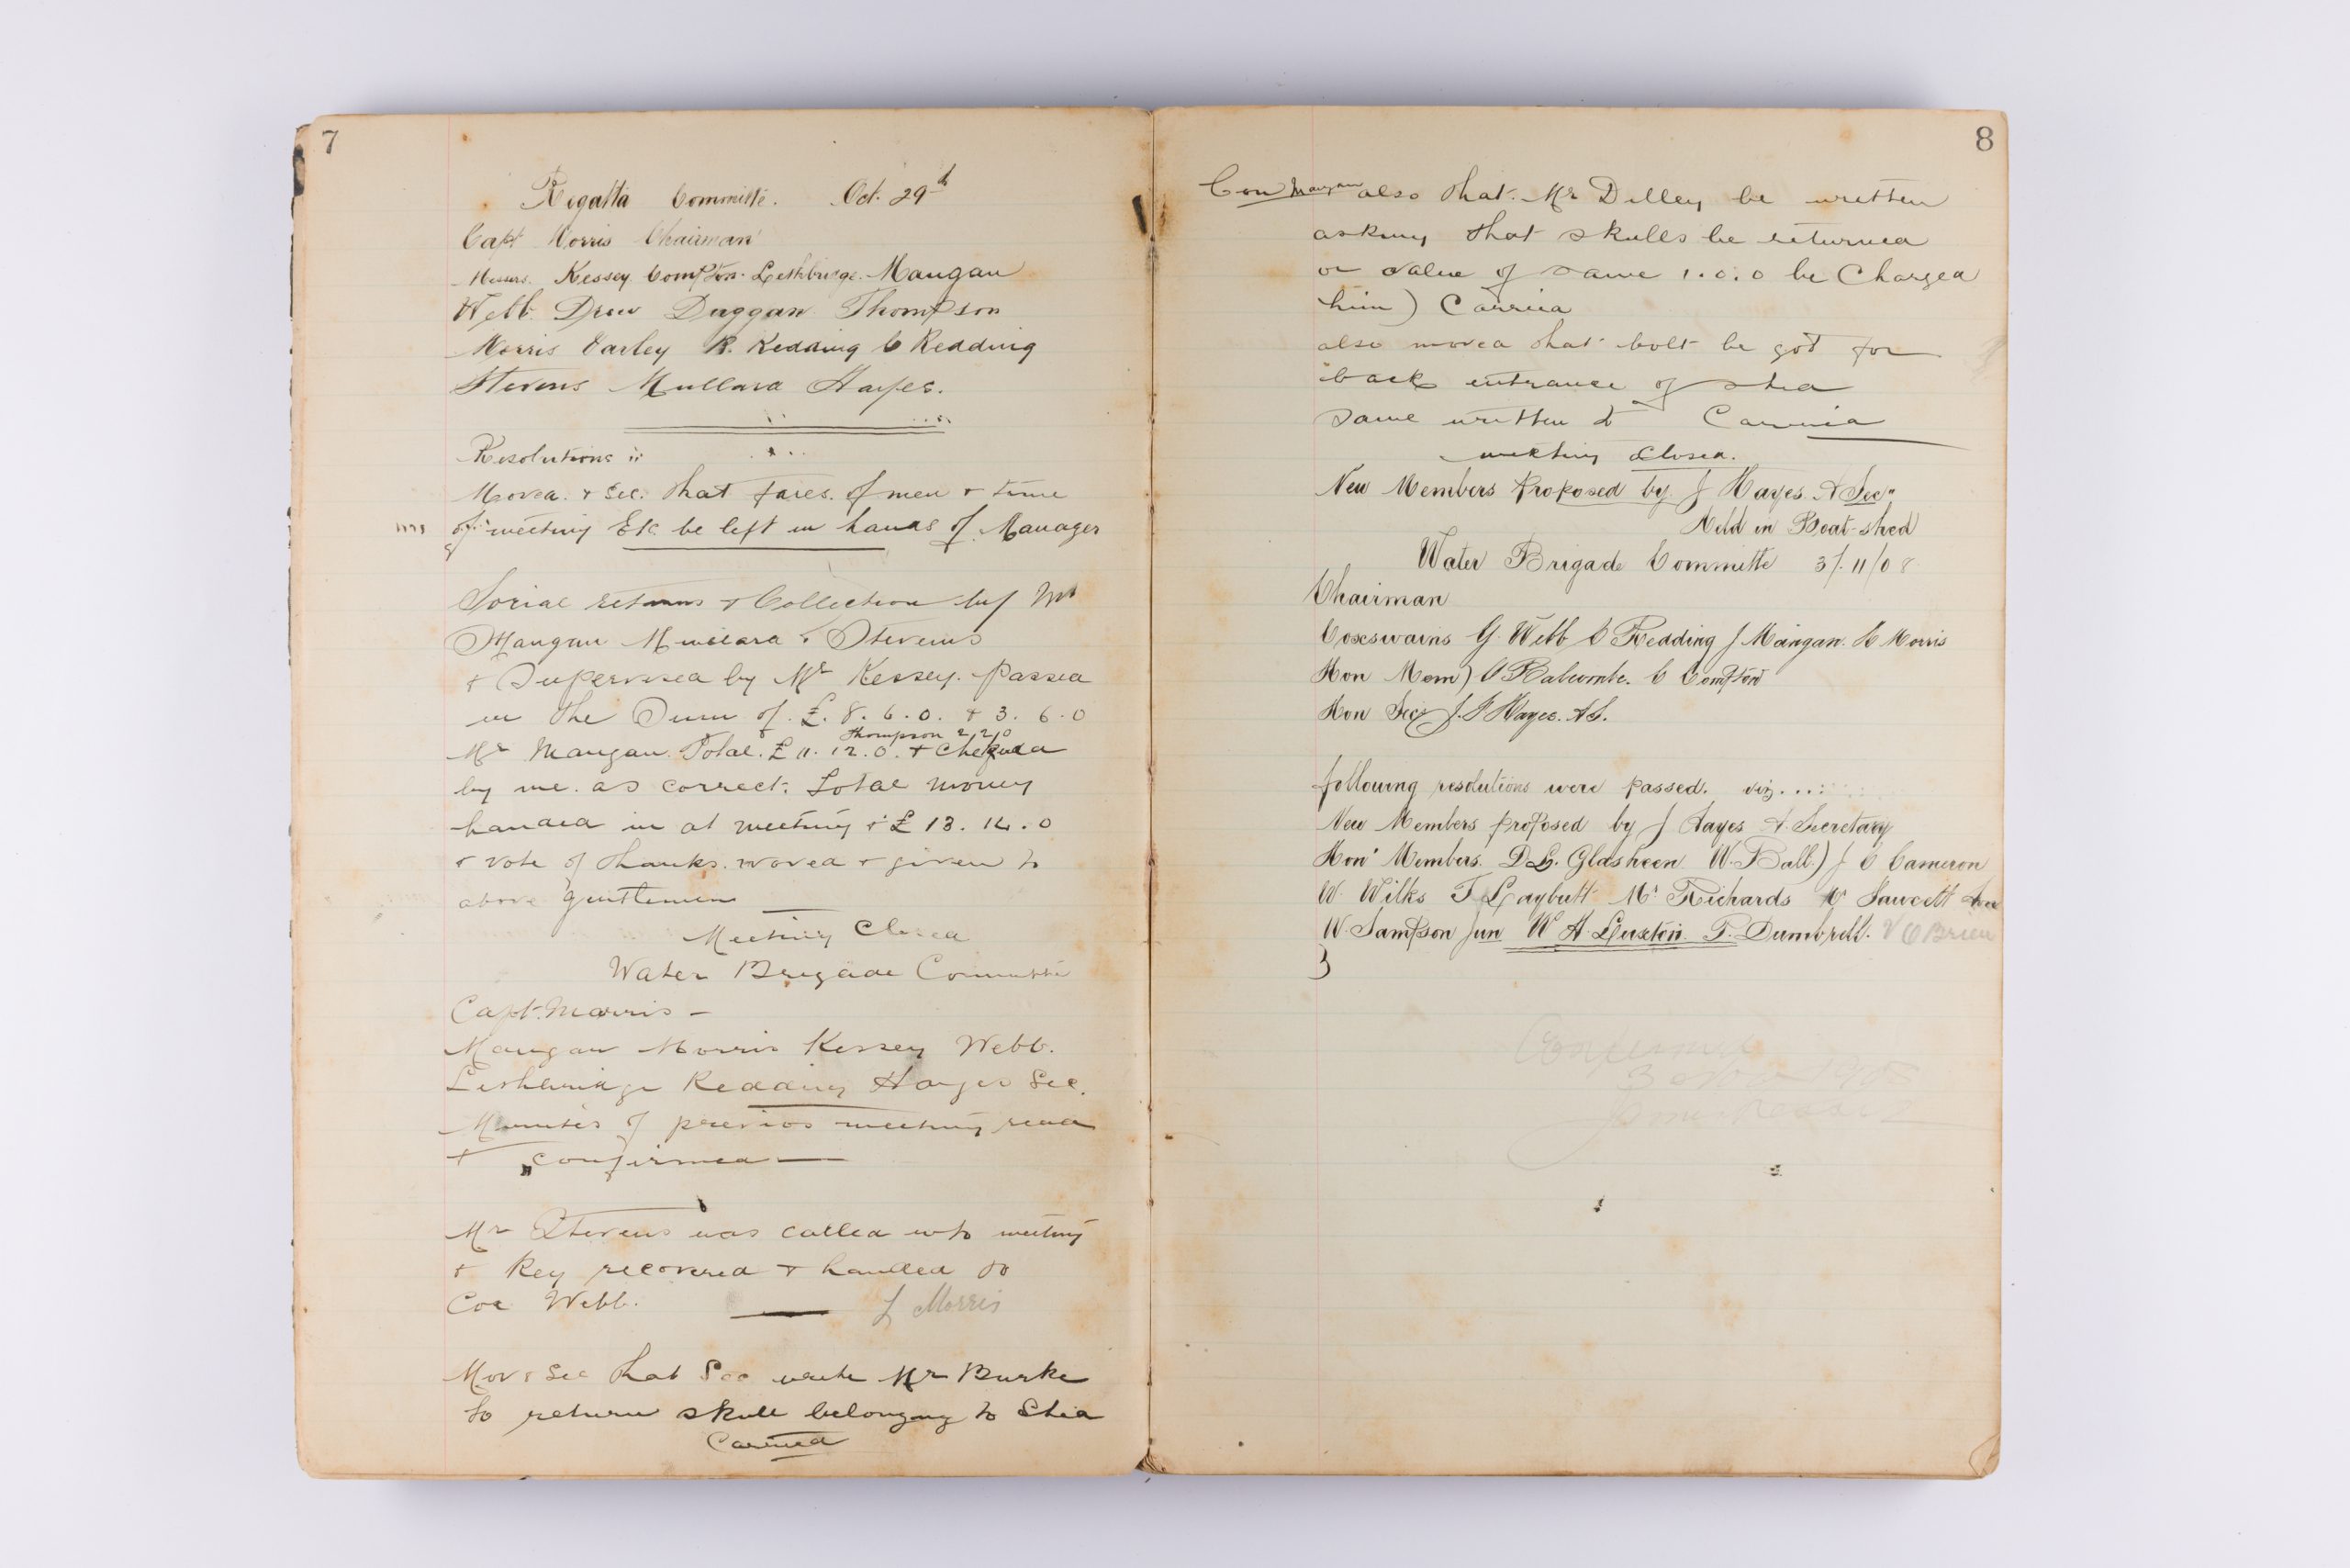 7
Regatta Committe. Oct. 29th
Capt Morris Chairman
Messrs. Kessey. Compton. Lethbridge. Mangan
Webb. Drew Duggan Thompson
Morris Earley R. Redding C Redding
Stevens Mullard Hayes.
Resolutions
Moved. & Sec. that fares. of men & time
of meeting Etc be left in hands of. Manager
Social returns & Collection by Mr
Mangan Mullard & Stevens
& Supervised by Mr Kessey. passed
in the Sum of. £. 8. 6. 0. & 3. 6. 0
Thompson 2/2/0
Mr Mangan. Total. £ 11. 12. 0. & Chequed
by me. as correct. Total money
handed in at meeting £ 13. 14. 0
& vote of thanks. moved & given to
above gentlemen
Meeting Closed
Water Brigade Committe
Capt. Morris —
Mangan Morris Kessey Webb.
Lethbridge Redding Hayes Sec.
Minutes of previos meeting read
& confirmed —
Mr Stevens was called into meeting
& Key recovered & handed to
Cox Webb. — J Morris
Mov & Sec that Sec write Mr Burke
to return skull belonging to Shed
Carried
8
Con Mangan also that. Mr Dilley be written
asking that skulls be returned
or value of same 1. 0. 0 be Charged
him) Carried
also moved that bolt be got for
back entrance of shed
same written to Carried
meeting Closed.
New Members proposed by. J Hayes. A Sec"
Held in Boat-shed
Water Brigade Committe 3/. 11/08
Chairman
Coxeswains G. Webb C Redding J Mangan. L Morris
Hon Mem) A Balcombe. C Compton
Hon Sec J. F Hayes. A S.
following resolutions were passed. viz...:
New Members proposed by J Hayes A. Secretary
Hon' Members. D L. Glasheen W. Ball.) J C Cameron
W. Wilks T Laybutt Mr Richards Mr Fawcett
W. Sampson Jun W A. Luxton P. Dumbrell. V O Brien
3
Confirmed
3 Nov 1908
James Kessey